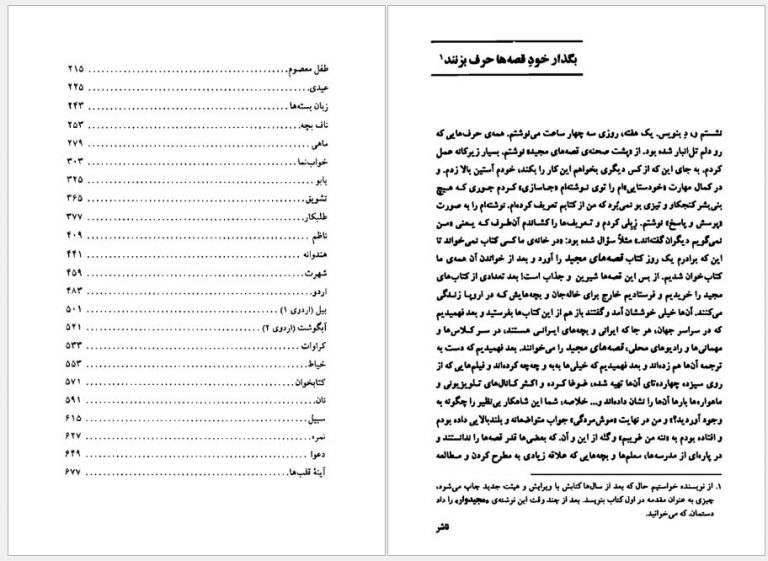 طفل معصوم ........ ۲۱۵
عیدی ........ ۲۲۵
زبان بسته‌ها ........ ۲۴۳
ناف بچه ........ ۲۵۳
ماهی ........ ۲۷۹
خواب‌نما ........ ۳۰۳
یابو ........ ۳۲۵
تشویق ........ ۳۶۵
طلبکار ........ ۳۷۷
ناظم ........ ۴۰۹
هندوانه ........ ۴۴۱
شهرت ........ ۴۵۹
اردو ........ ۴۸۳
بیل (اردوی ۱) ........ ۵۰۱
آبگوشت (اردوی ۲) ........ ۵۲۱
کراوات ........ ۵۳۳
خیاط ........ ۵۵۳
کتابخوان ........ ۵۷۱
نان ........ ۵۹۱
سبیل ........ ۶۱۵
نمره ........ ۶۲۷
دعوا ........ ۶۴۹
آینهٔ قلب‌ها ........ ۶۷۷
بگذار خودِ قصه‌ها حرف بزنند۱
نشستم و، دِ بنویس. یک هفته، روزی سه چهار ساعت می‌نوشتم. همه‌ی حرف‌هایی که
رو دلم تل‌انبار شده بود. از «پشت صحنه‌ی قصه‌های مجید» نوشتم. بسیار زیرکانه عمل
کردم. به جای این که از کس دیگری بخواهم این کار را بکند، خودم آستین بالا زدم. و
در کمال مهارت «خودستایی»ام را توی نوشته‌ام «جاسازی» کردم جوری که هیچ
بنی‌بشر کنجکاو و تیزی بو نمی‌بُرد که من از کتابم تعریف کرده‌ام. نوشته‌ام را به صورت
«پرسش و پاسخ» نوشتم. زِبِلی کردم و تعریف‌ها را کشاندم آن‌طرف که یعنی «من
نمی‌گویم دیگران گفته‌اند.» مثلاً سؤال شده بود: «در خانه‌ی ما کسی کتاب نمی‌خواند تا
این که برادرم یک روز کتاب قصه‌های مجید را آورد و بعد از خواندن آن همه‌ی ما
کتاب‌خوان شدیم. از بس این قصه‌ها شیرین و جذاب است! بعد تعدادی از کتاب‌های
مجید را خریدیم و فرستادیم خارج برای خاله‌جان و بچه‌هایش که در اروپا زندگی
می‌کنند. آن‌ها خیلی خوششان آمد و گفتند باز هم از این کتاب‌ها بفرستید و بعد فهمیدیم
که در سراسر جهان، هر جا که ایرانی و بچه‌های ایرانی هستند، در سر کلاس‌ها و
مهمانی‌ها و رادیوهای محلی، قصه‌های مجید را می‌خوانند. بعد فهمیدیم که دست به
ترجمه آن‌ها هم زده‌اند و بعد فهمیدیم که خیلی‌ها به‌به و چه‌چه کرده‌اند و فیلم‌هایی که از
روی سیزده چهارده‌تای آن‌ها تهیه شده، غوغا کرده و اکثر کانال‌های تلویزیونی و
ماهواره‌ها بارها آن‌ها را نشان داده‌اند و... خلاصه، شما این شاهکار بی‌نظیر را چگونه به
وجود آوردید؟» و من در نهایت «موش‌مردگی» جواب متواضعانه و بلندبالایی داده بودم
و افتاده بودم به «ننه من غریبم» و گله از این و آن. که بعضی‌ها قدر قصه‌ها را ندانستند و
در پاره‌ای از مدرسه‌ها، معلم‌ها و بچه‌هایی که علاقه زیادی به مطرح کردن و مطالعه
۱. از نویسنده خواستیم حال که بعد از سال‌ها کتابش با ویرایش و هیئت جدید چاپ می‌شود،
چیزی به عنوان مقدمه در اول کتاب بنویسد. بعد از چند وقت این نوشته‌ی «مجیدوار» را داد
دستمان. که می‌خوانید.
ناشر